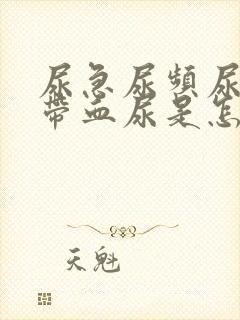 尿急尿频尿
带血尿是怎
天魁